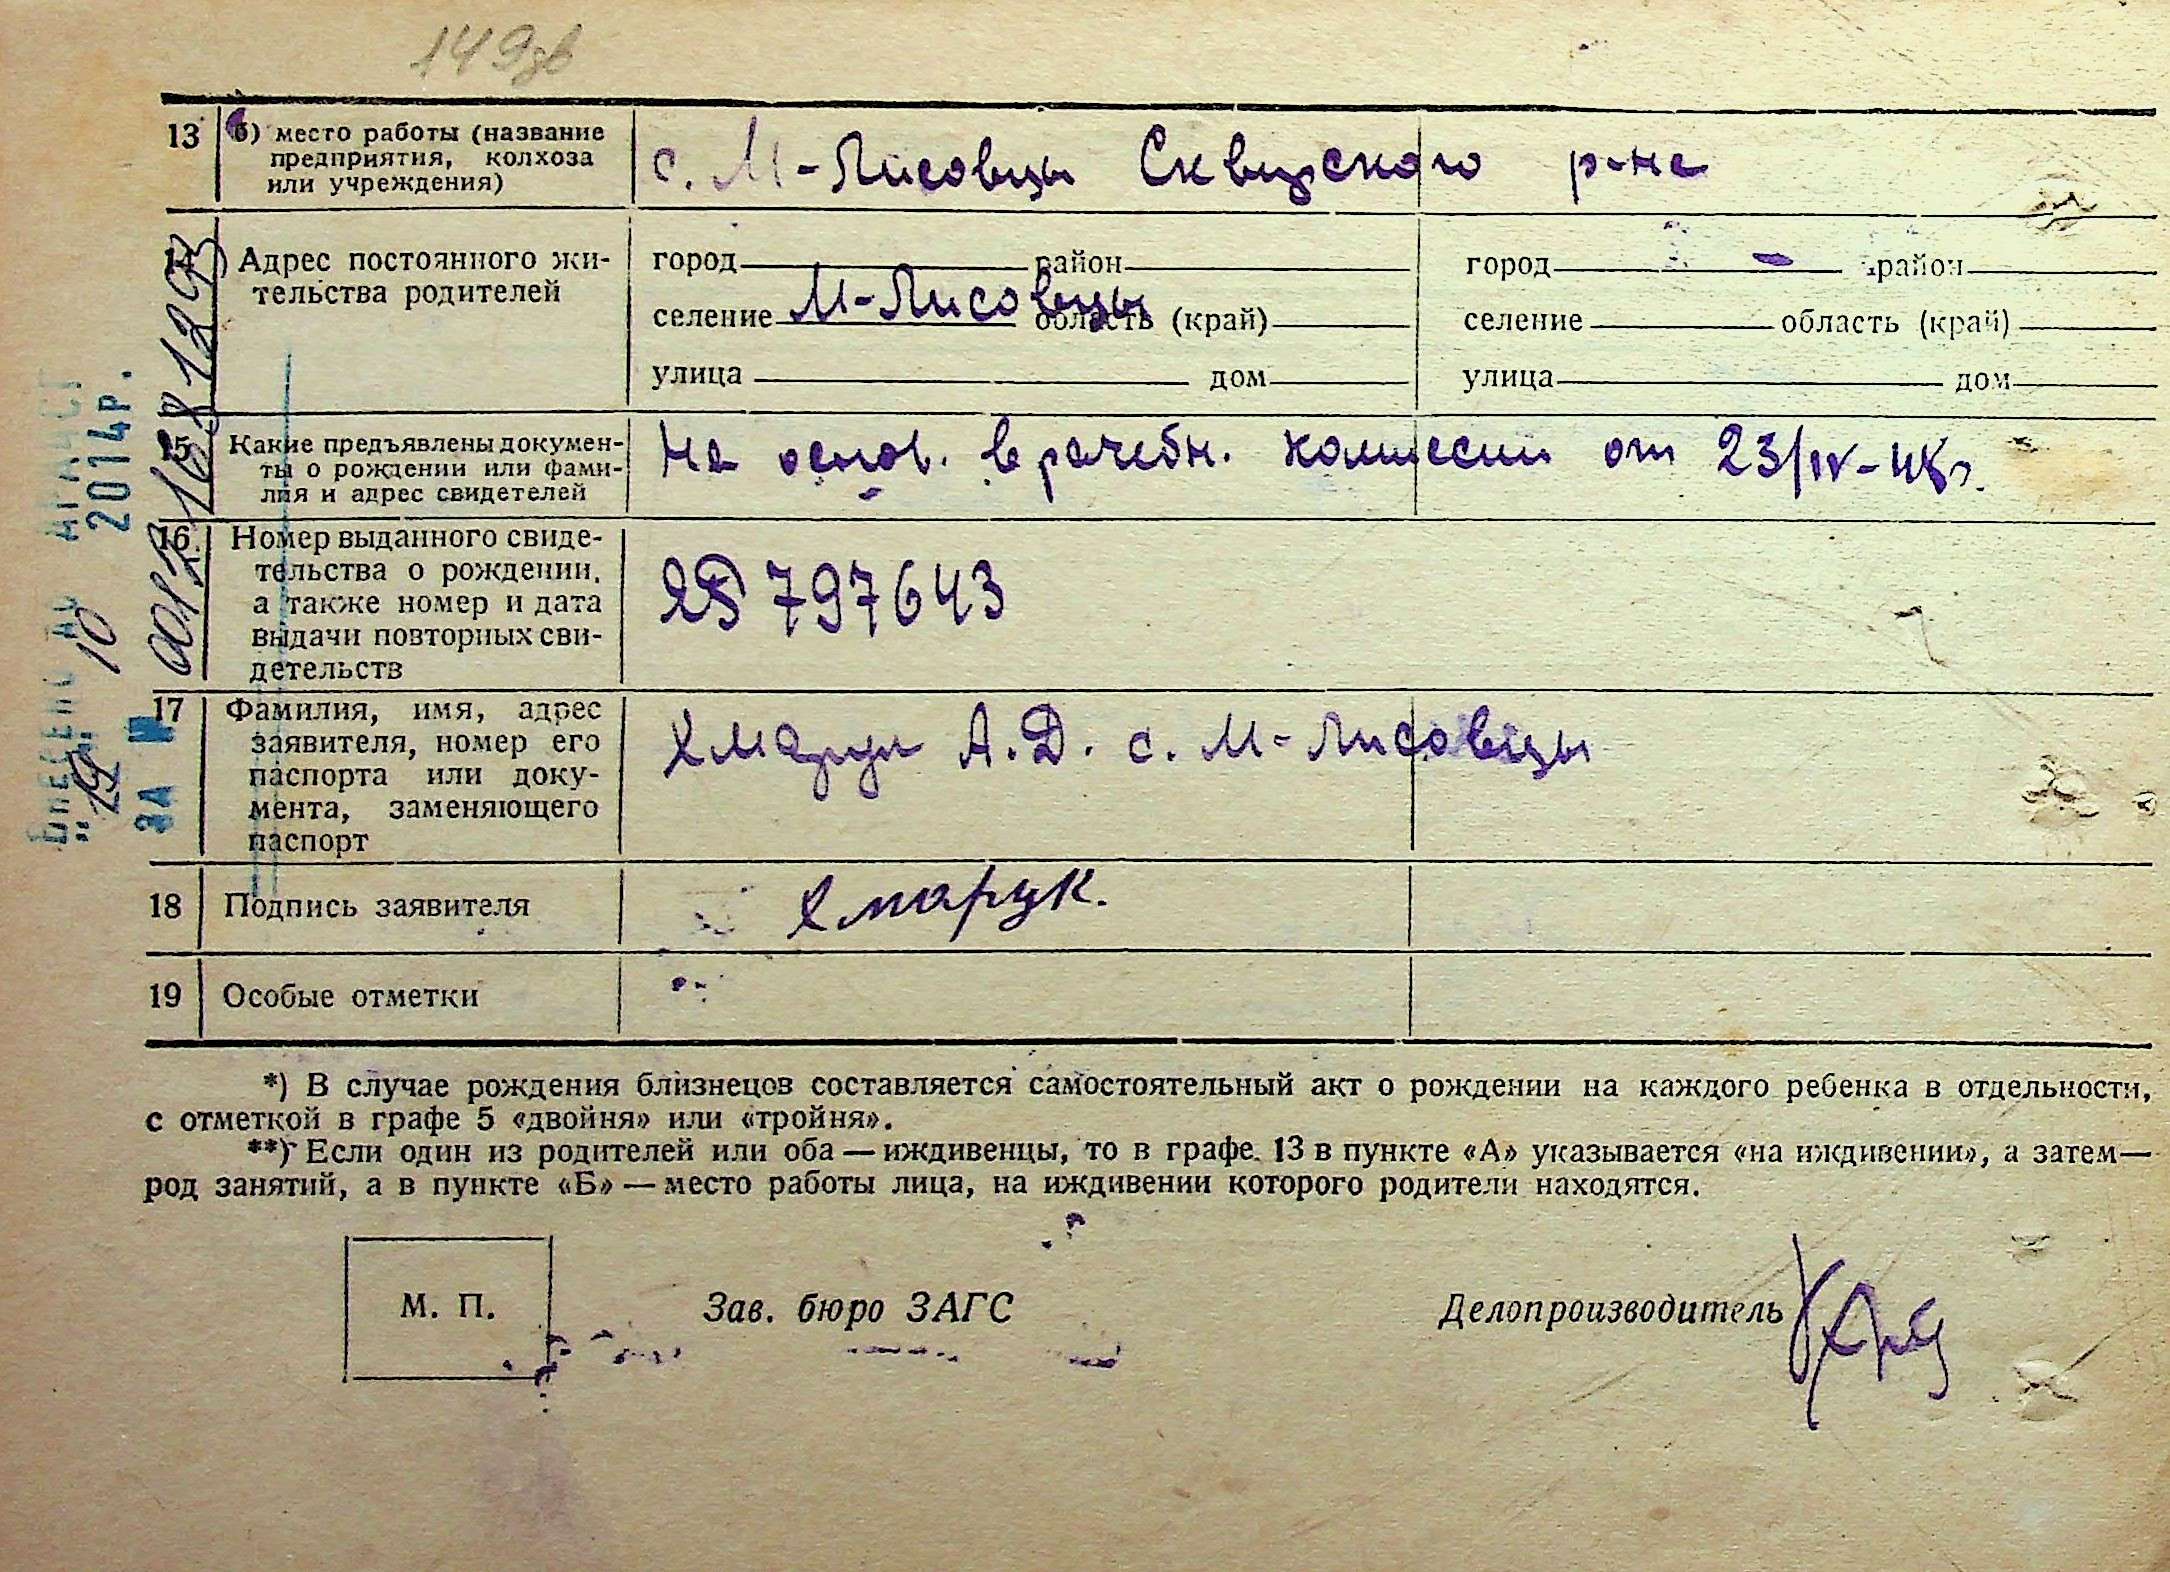 149зв
13 б) место работы (название предприятия, колхоза или учреждения)
с. М-Лисовцы Сквирского р-на
14 Адрес постоянного жительства родителей
город район
селение М-Лисовцы область (край)
улица дом
город - район
селение область (край)
улица дом
15 Какие предъявлены документы о рождении или фамилия и адрес свидетелей
На основ. врачебн. комиссии от 23/IV-48г.
16. Номер выданного свидетельства о рождении, а также номер и дата выдачи повторных свидетельств
797643
17 Фамилия, имя, адрес заявителя, номер его паспорта или документа, заменяющего паспорт
Хмарук А.Д. с. М-Лисовцы
18 Подпись заявителя
Хмарук.
19 Особые отметки
*) В случае рождения близнецов составляется самостоятельный акт о рождении на каждого ребенка в отдельности,
с отметкой в графе 5 «двойня» или «тройня».
**) Если один из родителей или оба — иждивенцы, то в графе 13 в пункте «А» указывается «на иждивении», а затем —
род занятий, а в пункте «Б» — место работы лица, на иждивении которого родители находятся.
М. П.
Зав. бюро ЗАГС
Делопроизводитель
10 2014р.
ЗА №